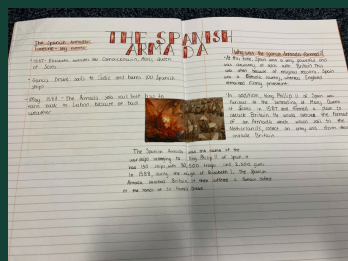 THE SPANISH
ARMADA
The Spanish Armada:
timeline - key events
1587 - Elizabeth executes her Cousin, Mary, Queen
of Scots
Francis Drake sails to Cadiz and burns 100 Spanish
ships
May 1588 - The Armada sets sail but has to
turn back to Lisbon because of bad
weather
Why was the Spanish Armada formed?
At this time, Spain was a very powerful and
was constantly at war with Britain. This
was often because of religious reasons. Spain
was a Catholic country, whereas England
remained firmly protestant.
In addition, King Phillip II of Spain was
furious at the beheading of Mary, Queen
of Scots in 1587 and formed a plan to
attack Britain. He would
of an Armada which would sail to the
Netherlands, collect an army and
invade Britain.
The Spanish Armada was the name of the
warships belonging to King Philip II of Spain. It
had 130 ships with 30,500 troops and 2,500 guns.
In 1588, during the reign of Elizabeth I, the Spanish
Armada invaded Britain. It then suffered a famous defeat
at the hands of Sir Francis Drake